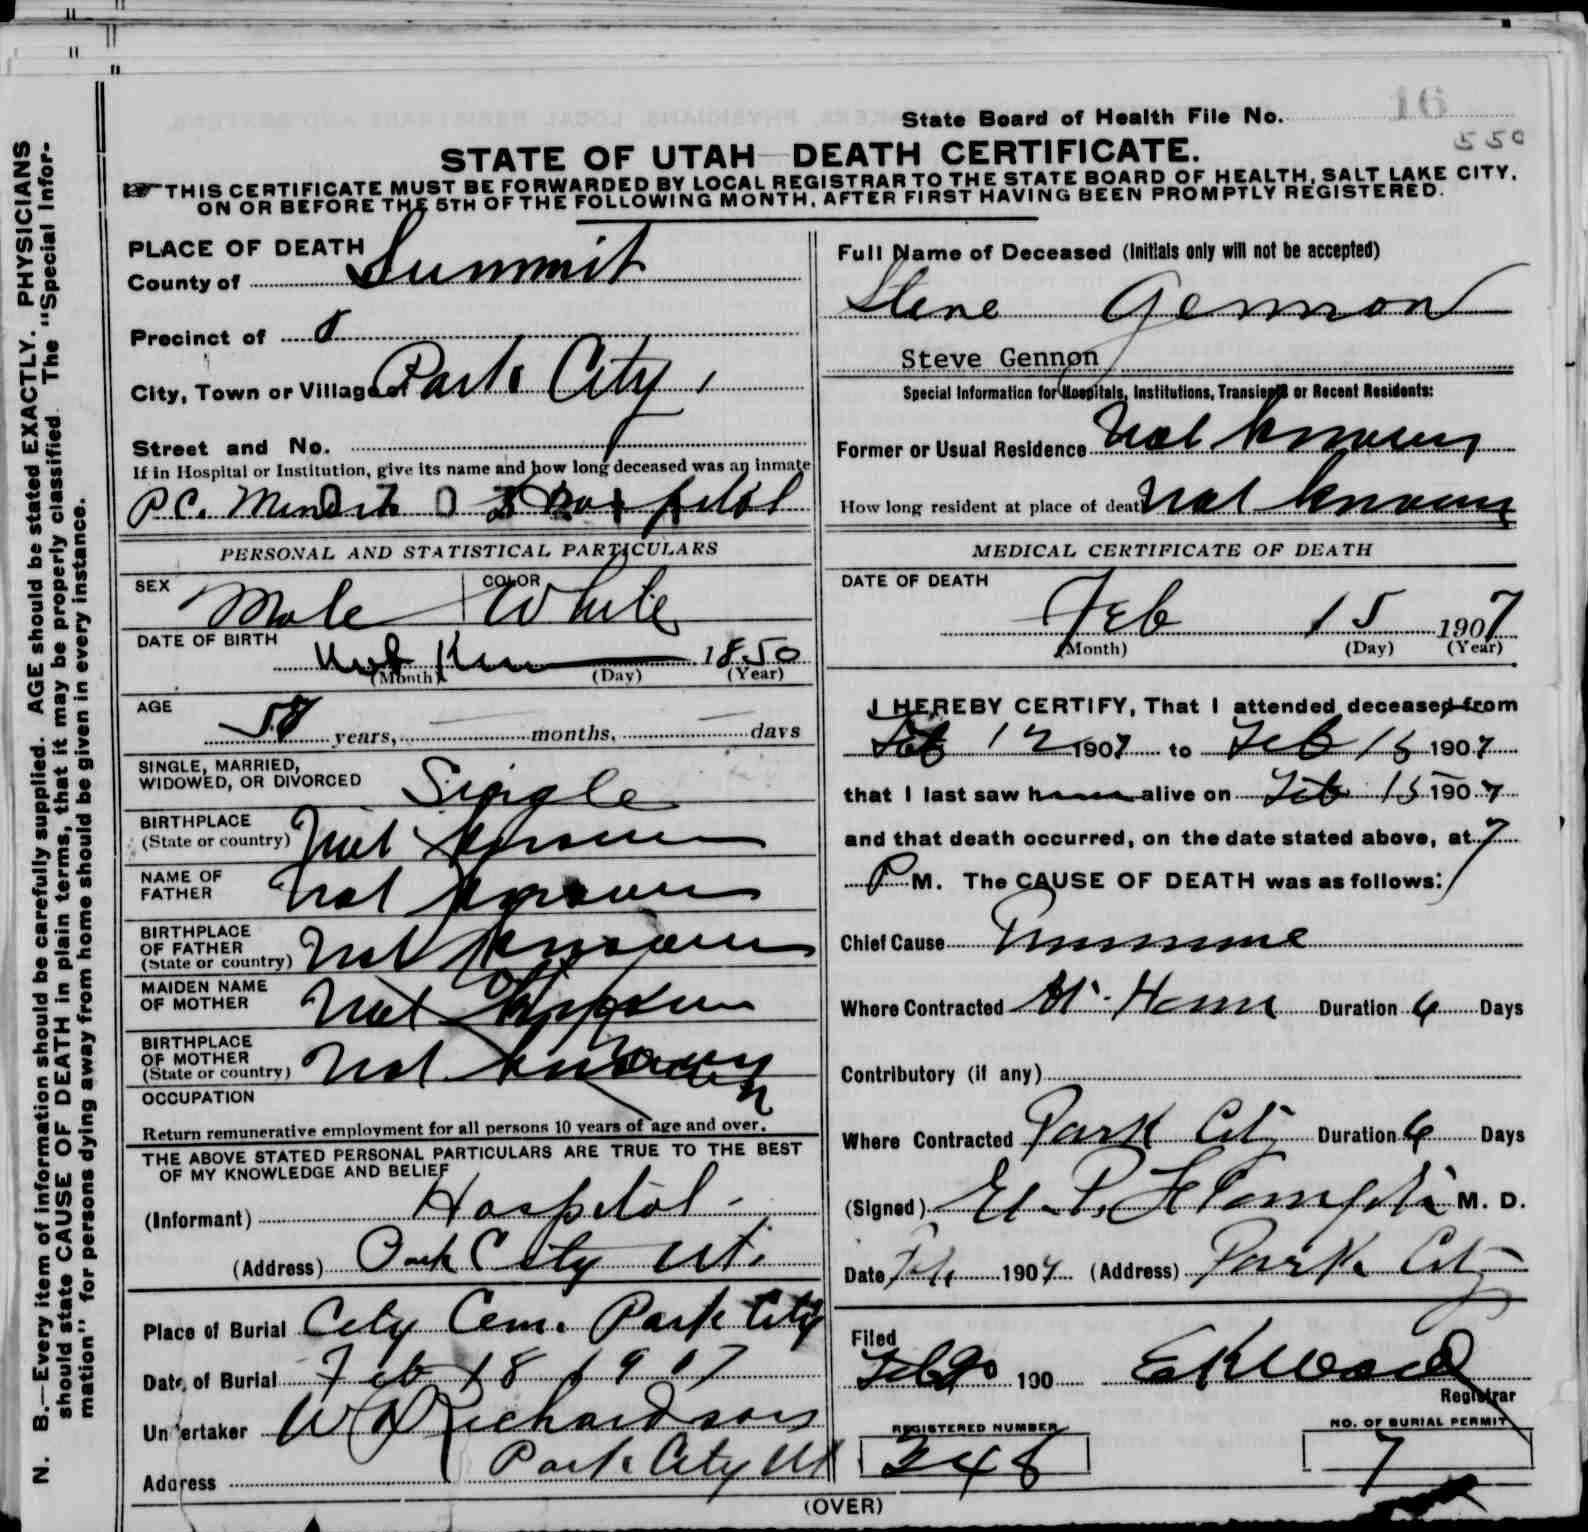 State Board of Health File No. 16
550
STATE OF UTAH DEATH CERTIFICATE.
THIS CERTIFICATE MUST BE FORWARDED BY LOCAL REGISTRAR TO THE STATE BOARD OF HEALTH, SALT LAKE CITY,
ON OR BEFORE THE 5TH OF THE FOLLOWING MONTH, AFTER FIRST HAVING BEEN PROMPTLY REGISTERED.
N. B.—Every item of information should be carefully supplied. AGE should be stated EXACTLY. PHYSICIANS
should state CAUSE OF DEATH in plain terms, that it may be properly classified. The "Special Infor-
mation" for persons dying away from home should be given in every instance.
PLACE OF DEATH
County of Summit
Precinct of
City, Town or Village of Park City
Street and No.
If in Hospital or Institution, give its name and how long deceased was an inmate
P.C. Hospital
PERSONAL AND STATISTICAL PARTICULARS
SEX Male COLOR White
DATE OF BIRTH
Not Kn 1850
(Month) (Day) (Year)
AGE
years, months, days
SINGLE, MARRIED,
WIDOWED, OR DIVORCED Single
BIRTHPLACE
(State or country) Not Known
NAME OF
FATHER Not Known
BIRTHPLACE
OF FATHER
(State or country) Not Known
MAIDEN NAME
OF MOTHER Not Known
BIRTHPLACE
OF MOTHER
(State or country) Not Known
OCCUPATION
Return remunerative employment for all persons 10 years of age and over.
THE ABOVE STATED PERSONAL PARTICULARS ARE TRUE TO THE BEST
OF MY KNOWLEDGE AND BELIEF
(Informant) Hospital
(Address) Park City Ut.
Place of Burial City Cem. Park City
Date of Burial Feb 18 1907
Undertaker W Richardson
Address Park City Ut
Full Name of Deceased (Initials only will not be accepted)
Steve Gennon
Steve Gennon
Special Information for Hospitals, Institutions, Transients or Recent Residents:
Former or Usual Residence Not Known
How long resident at place of death Not Known
MEDICAL CERTIFICATE OF DEATH
DATE OF DEATH
Feb 15 1907
(Month) (Day) (Year)
I HEREBY CERTIFY, That I attended deceased from
Feb 12 1907 to Feb 15 1907
that I last saw h alive on Feb 15 1907
and that death occurred, on the date stated above, at 7
P M. The CAUSE OF DEATH was as follows:
Chief Cause
Where Contracted At Home Duration 6 Days
Contributory (if any)
Where Contracted Park City Duration 6 Days
(Signed) M. D.
Date Feb 1907 (Address) Park City
Filed
Feb 20 190
Registrar
REGISTERED NUMBER
348
NO. OF BURIAL PERMIT
7
(OVER)